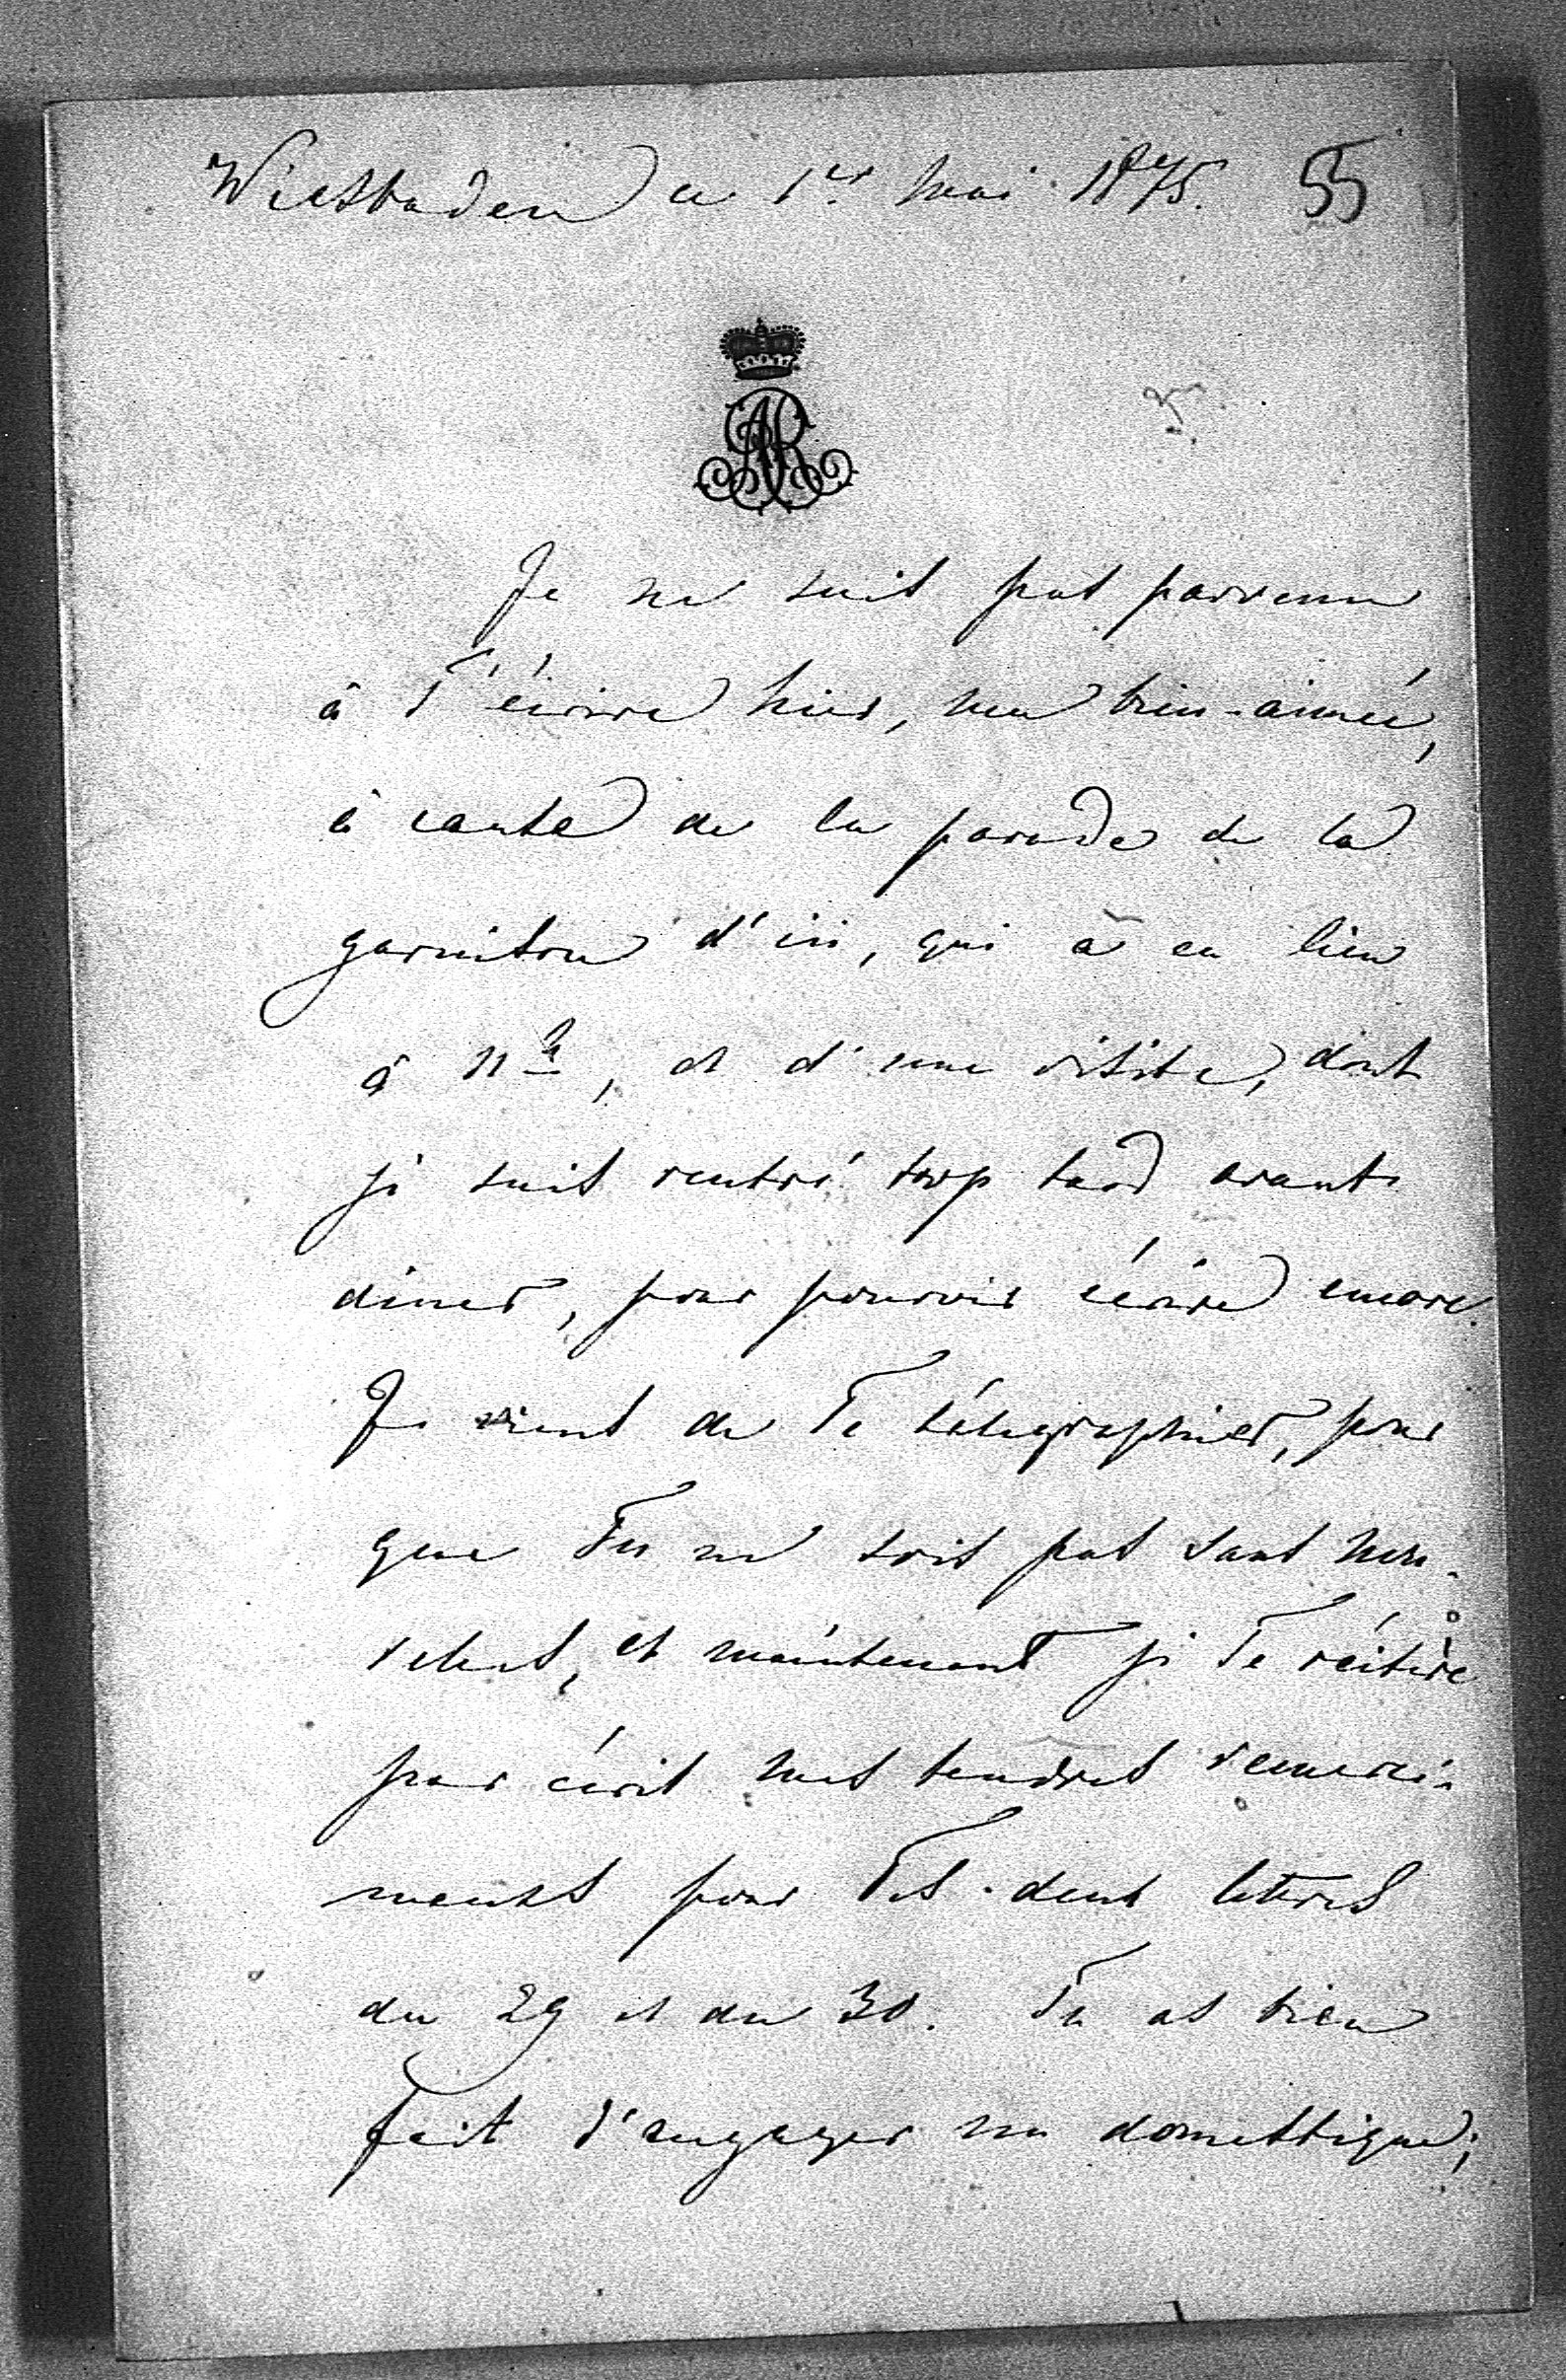 Wiesbaden ce 1er Mai 1875. 55
AR
Je ne suis pas parvenu
à T'écrire hier, ma bien-aimée,
à cause de la parade de la
garnison d'ici, qui a eu lieu
à 11 h, et d'une visite, dont
je suis rentré trop tard avant
diner, pour pouvoir écrire encore.
Je viens de Te télegraphier, pour
que Tu ne sois pas sans nou-
velles, et maintenant je Te réitère
par écrit mes tendres remerci-
ments pour Tes deux lettres
du 29 et du 30. Tu as bien
fait d'engager un domestique;